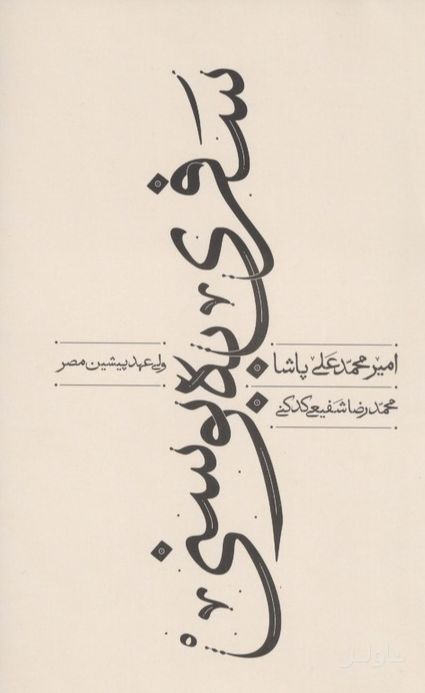 سفری
بوسنی
امیر محمّد علی پاشا
ولی عهد پیشین مصر
محمّدرضا شفیعی کدکنی